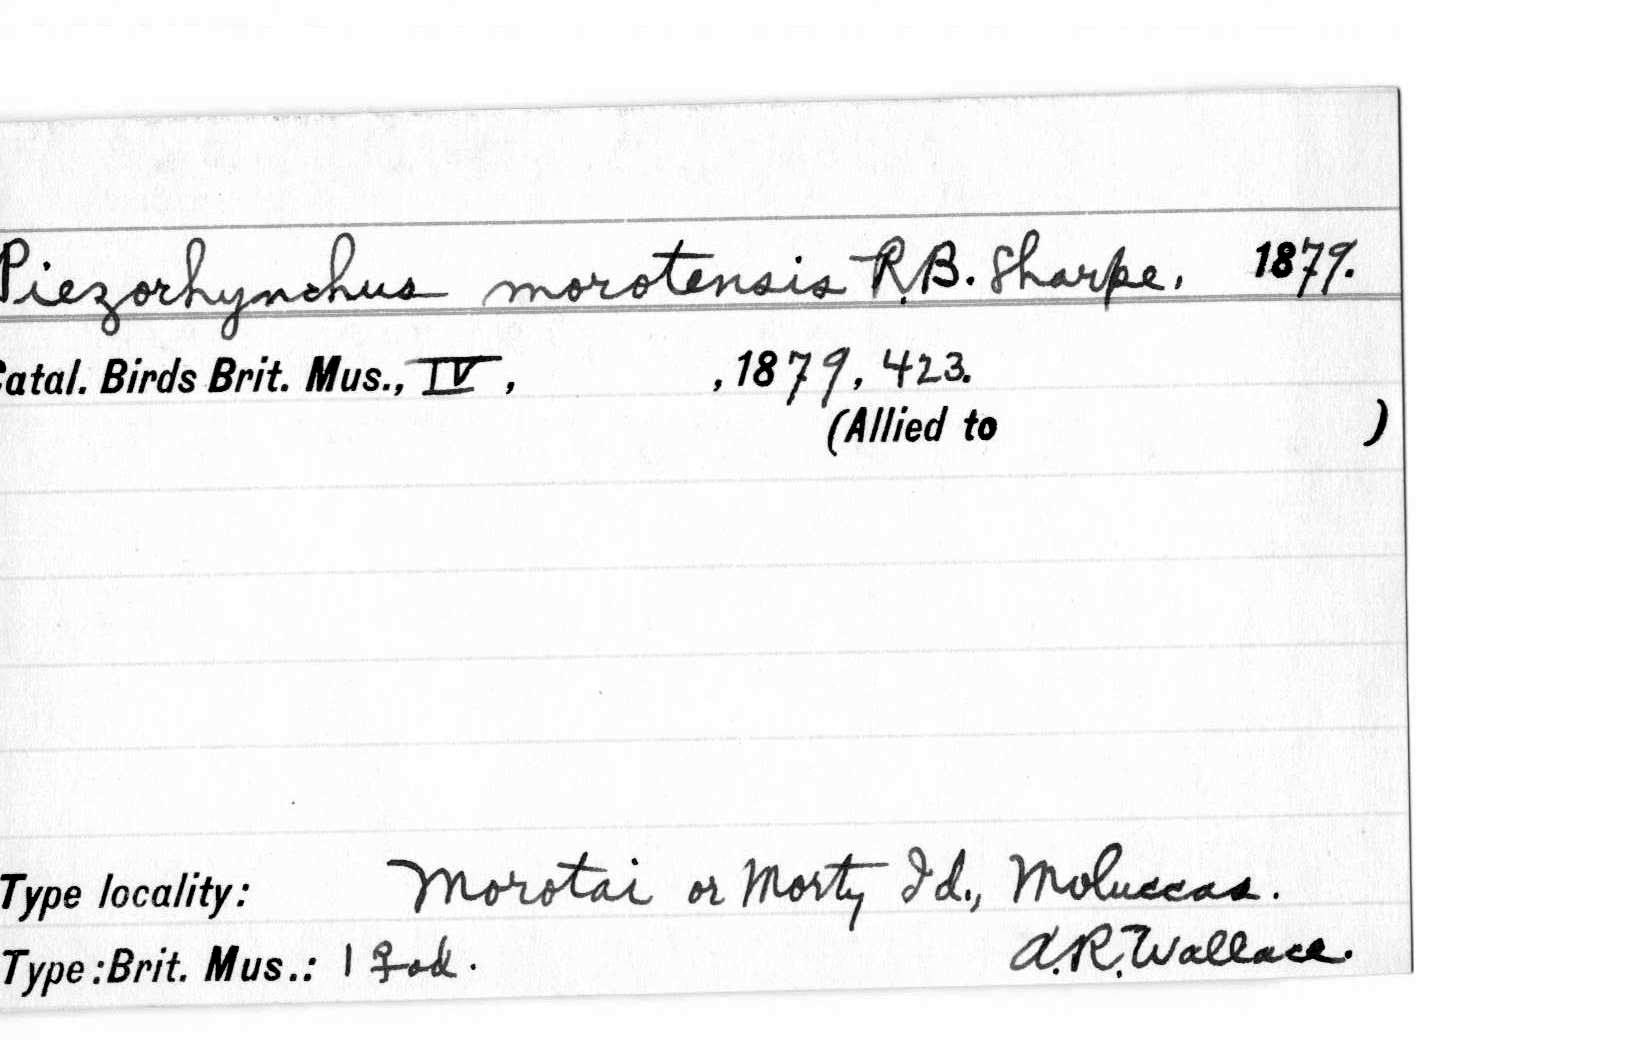 Piezorhynchus morotensis R.B. Sharpe, 1879.
Catal. Birds Brit. Mus., IV, , 1879, 423.
(Allied to )
Type locality: Morotai or Morty Id., Moluccas.
Type: Brit. Mus.: 1 ♀ ad. A.R. Wallace.